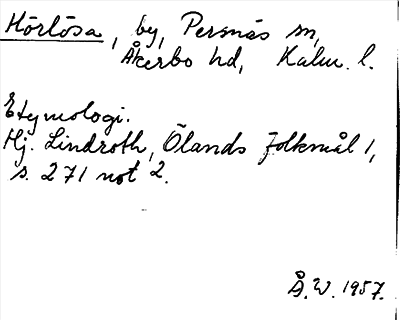 Hörlösa, by, Persnäs sn,
Åkerbo hd, Kalm. l.
Etymologi.
Hj. Lindroth, Ölands folkmål 1,
s. 271 not 2.
Å.W. 1957.